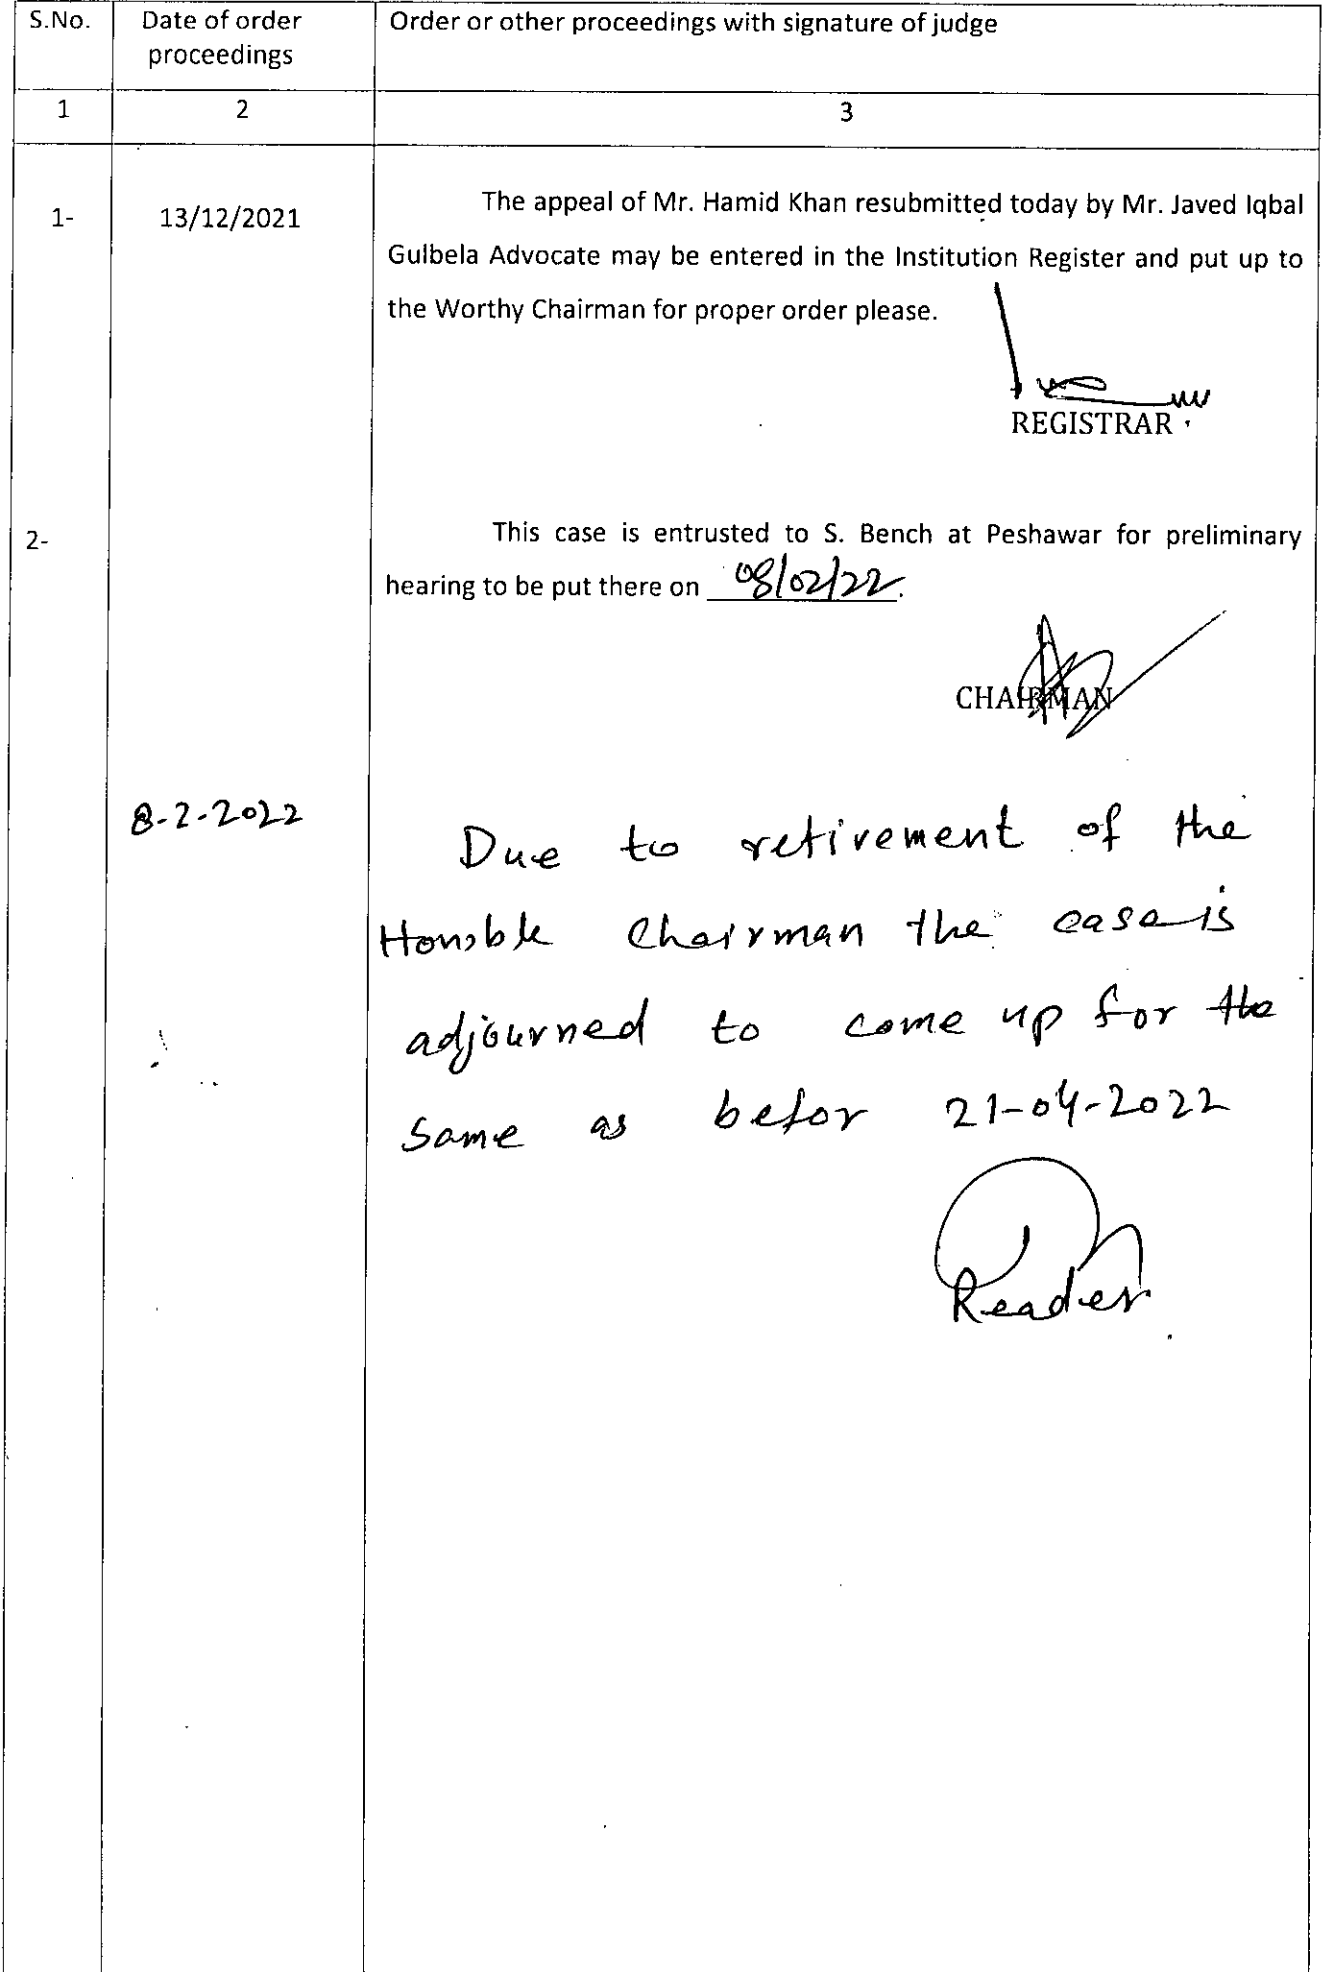 S.No. Date of order Order or other proceedings with signature of judge
proceedings
1 2 3
1- 13/12/2021 The appeal of Mr. Hamid Khan resubmitted today by Mr. Javed Iqbal
Gulbela Advocate may be entered in the Institution Register and put up to
the Worthy Chairman for proper order please.
REGISTRAR
2- This case is entrusted to S. Bench at Peshawar for preliminary
hearing to be put there on 08/02/22.
CHAIRMAN
8-2-2022 Due to retirement of the
Honoble Chairman the case is
adjourned to come up for the
same as befor 21-04-2022
Reader